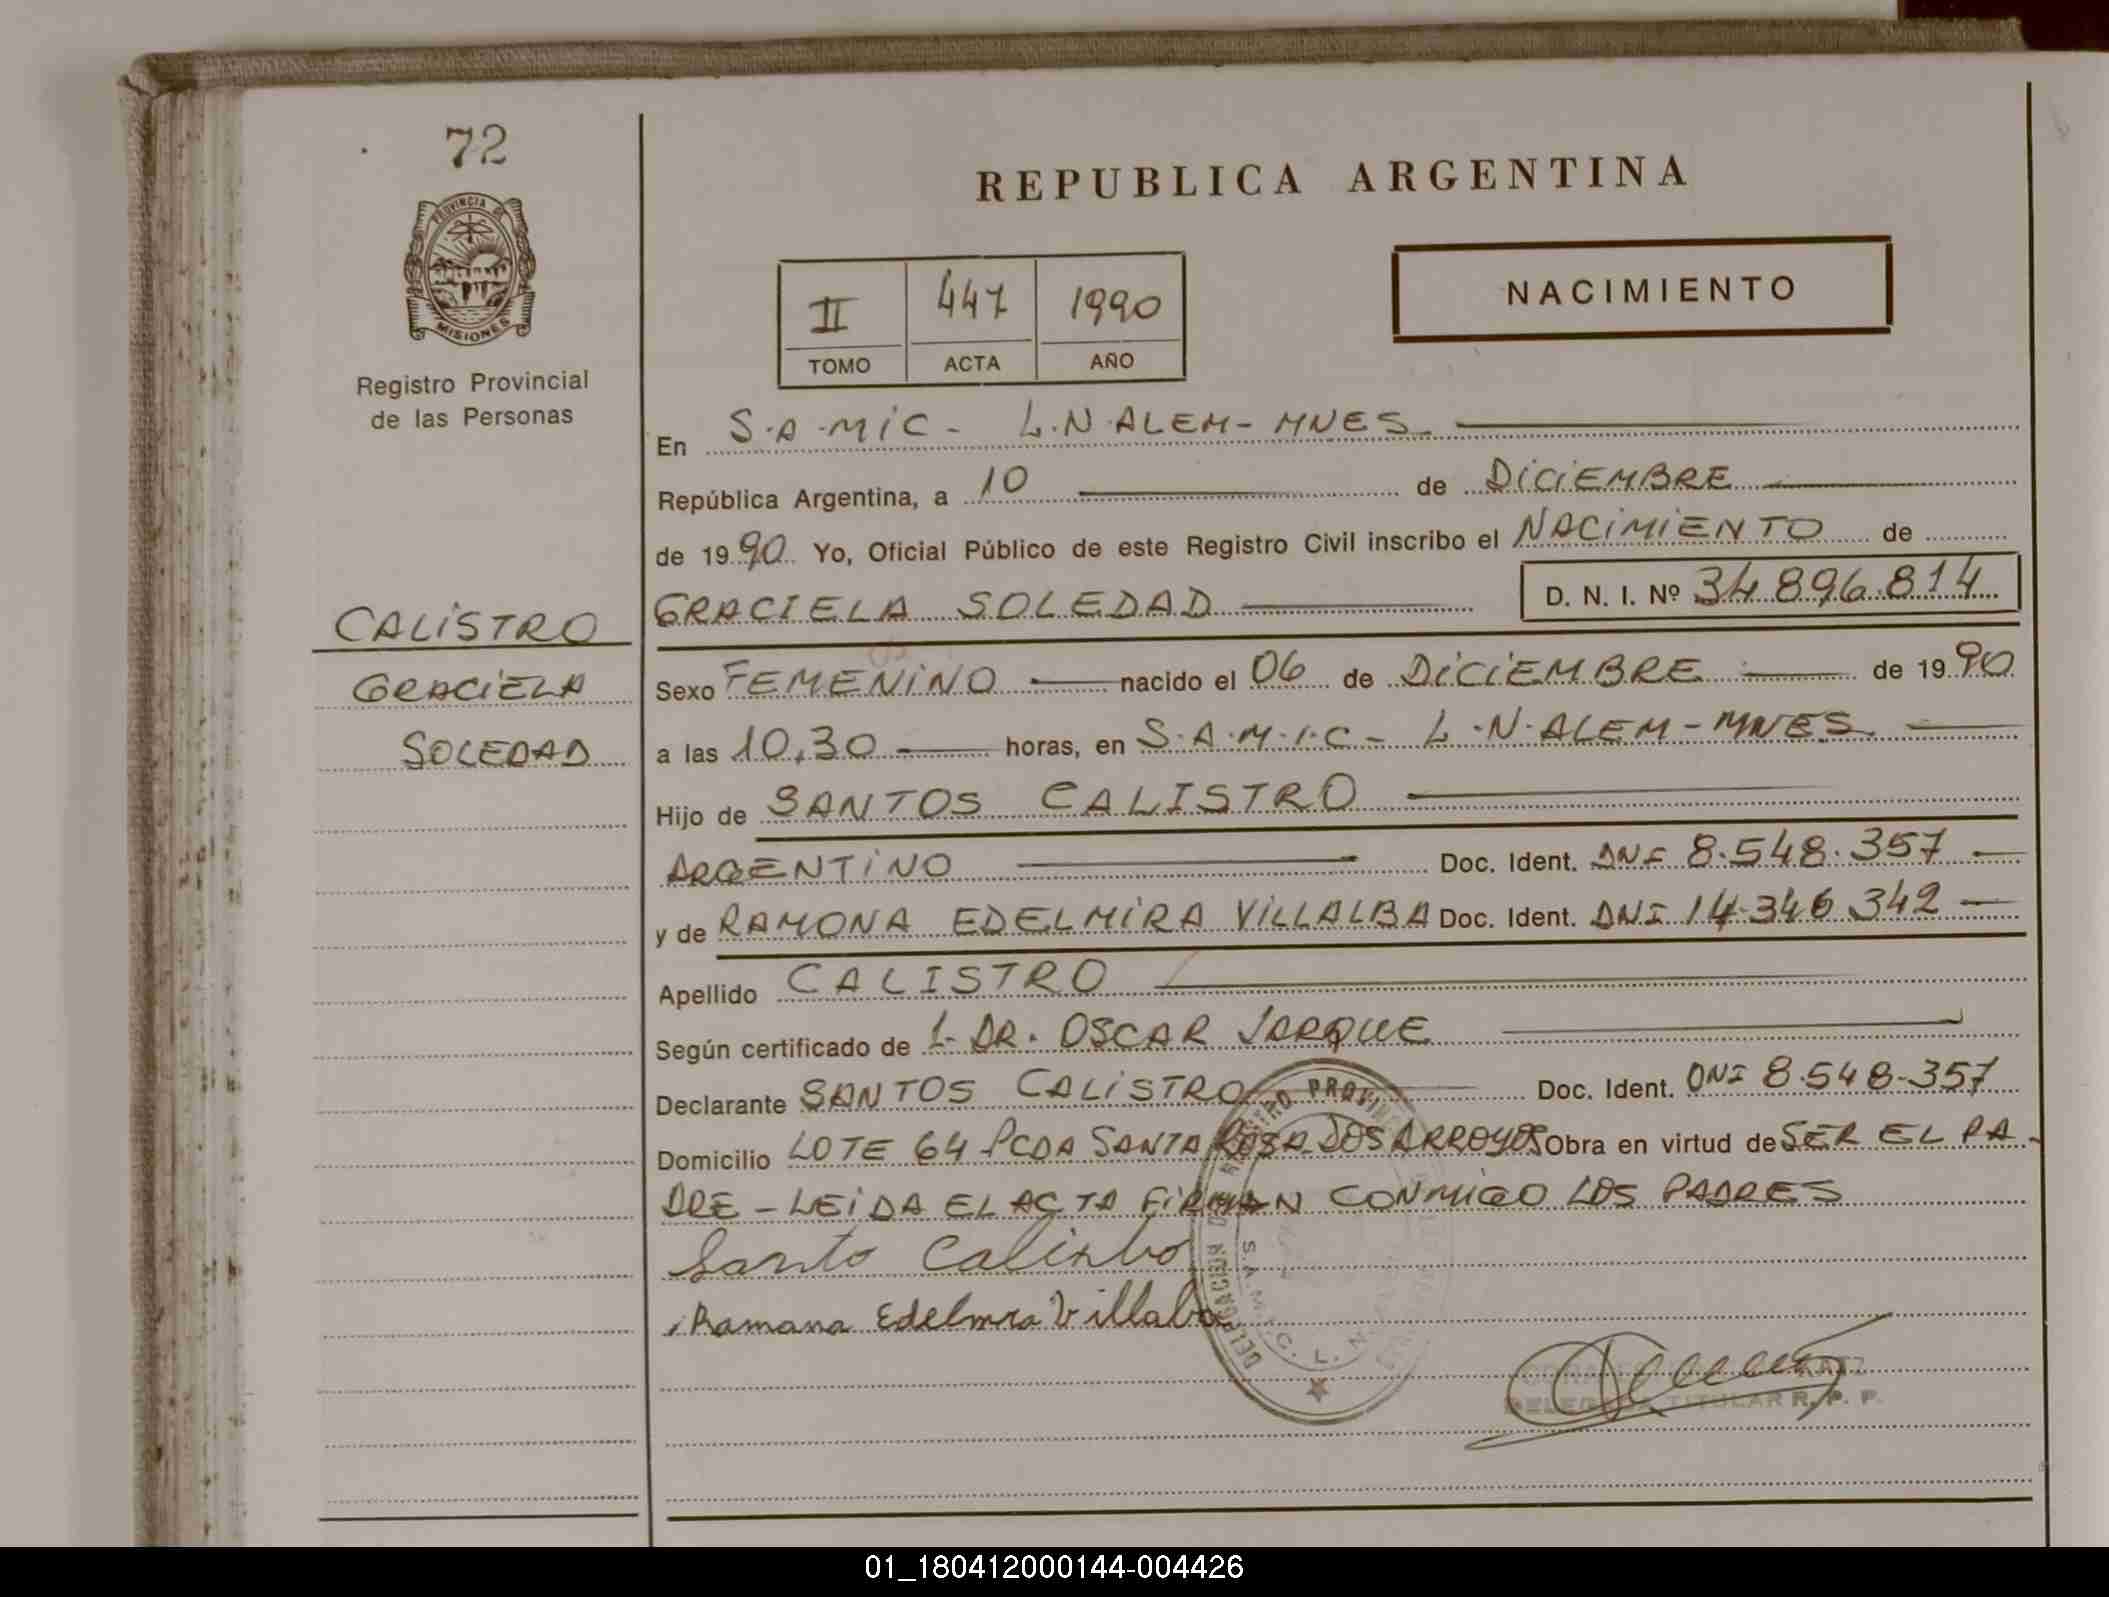 72
PROVINCIA DE
MISIONES
Registro Provincial
de las Personas
CALISTRO
GRACIELA
SOLEDAD
REPUBLICA ARGENTINA
II 447 1990
TOMO ACTA AÑO
NACIMIENTO
En S.A.MIC - L.N.ALEM - MNES
República Argentina, a 10 de DICIEMBRE
de 1990 Yo, Oficial Público de este Registro Civil inscribo el NACIMIENTO de
GRACIELA SOLEDAD D. N. I. Nº 34.896.814
Sexo FEMENINO nacido el 06 de DICIEMBRE de 1990
a las 10,30 horas, en S.A.M.I.C - L.N.ALEM - MNES
Hijo de SANTOS CALISTRO
ARGENTINO Doc. Ident. DNI 8.548.357
y de RAMONA EDELMIRA VILLALBA Doc. Ident. DNI 14.346.342
Apellido CALISTRO
Según certificado de L. DR. OSCAR JARQUE
Declarante SANTOS CALISTRO Doc. Ident. DNI 8.548.357
Domicilio LOTE 64 PCDA SANTA ROSA DOS ARROYOS Obra en virtud de SER EL PA
DRE - LEIDA EL ACTA FIRMAN CONMIGO LOS PADRES
Santo Calistro
Ramana Edelmra Villalba
DELEGADA TITULAR R. P. P.
01_180412000144-004426